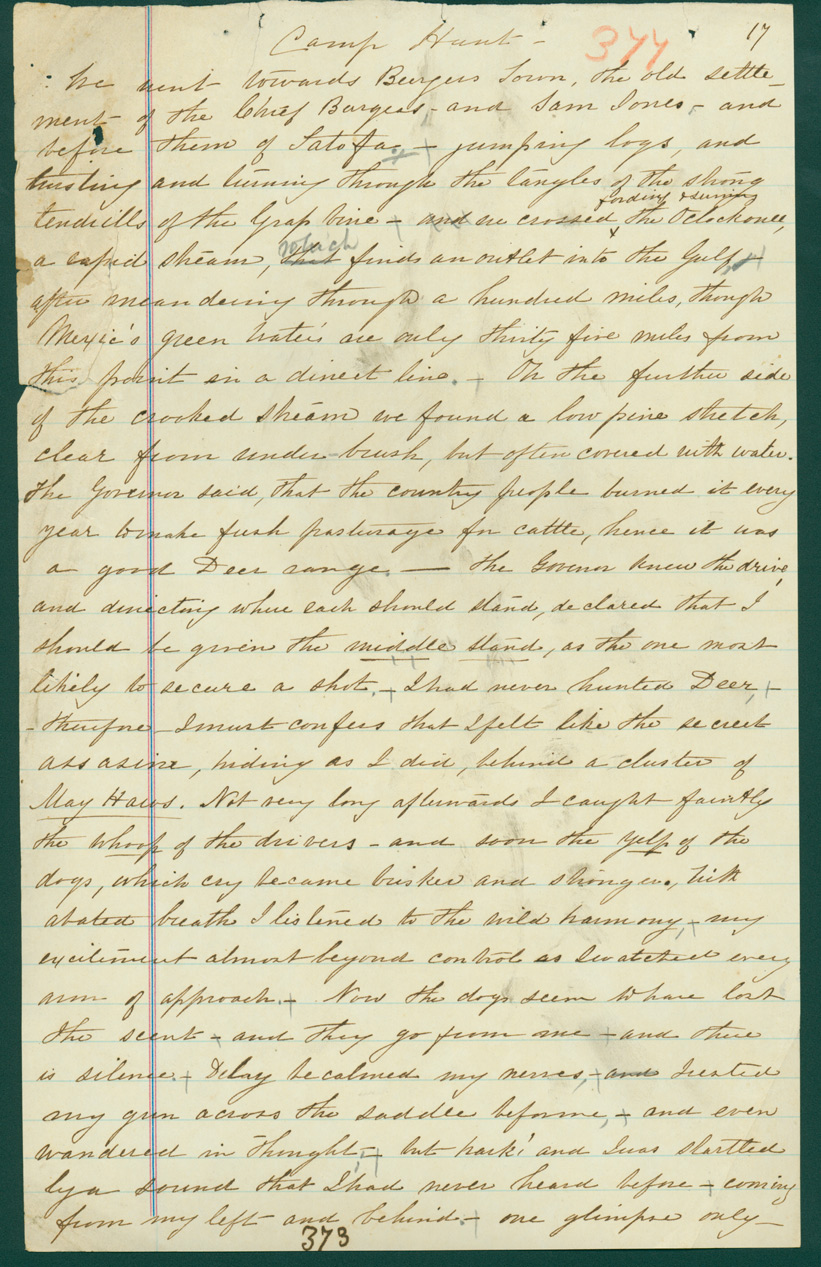 Camp Hunt - 377 17
We went towards Burgess Town, the old settle-
ment - of the Chief Burgess, - and Sam Jones, - and
before them of Satofa. - jumping logs, and
twisting and turning through the tangles of the strong
fording & swimming
tendrills of the Grap Vine - and we crossed the Oclockonee,
which
a rapid stream, that finds an outlet into the Gulf, -
after meandering through a hundred miles, though
Mexic's green waters are only thirty five miles from
this point in a direct line. - On the further side
of the crooked stream we found a low pine stretch,
clear from under-brush, but often covered with water.
The Governor said, that the country people burned it every
year to make fresh pasturage for cattle, hence it was
a good Deer range. — The Govenor knew the drive,
and directing where each should stand, declared that I
should be given the middle stand, as the one most
likely to secure a shot. - I had never hunted Deer, -
- therefore - I must confess that I felt like the secreet
assasine, hiding as I did, behind a cluster of
May Haws. Not very long afterwards I caught faintly
the whoop of the drivers - and soon the yelp of the
dogs, which cry became brisker and stronger, with
abated breath I listened to the wild harmony, - my
excitement almost beyond control as I watched every
arm of approach. - Now the dogs seem to have lost
the scent - and they go from me - and there
is silence. - Delay becalmed my nerves, - and I rested
my gun across the saddle before me, - and even
wandered in thought, - but hark! and I was startled
by a sound that I had never heard before - coming
from my left and behind. - one glimpse only -
373